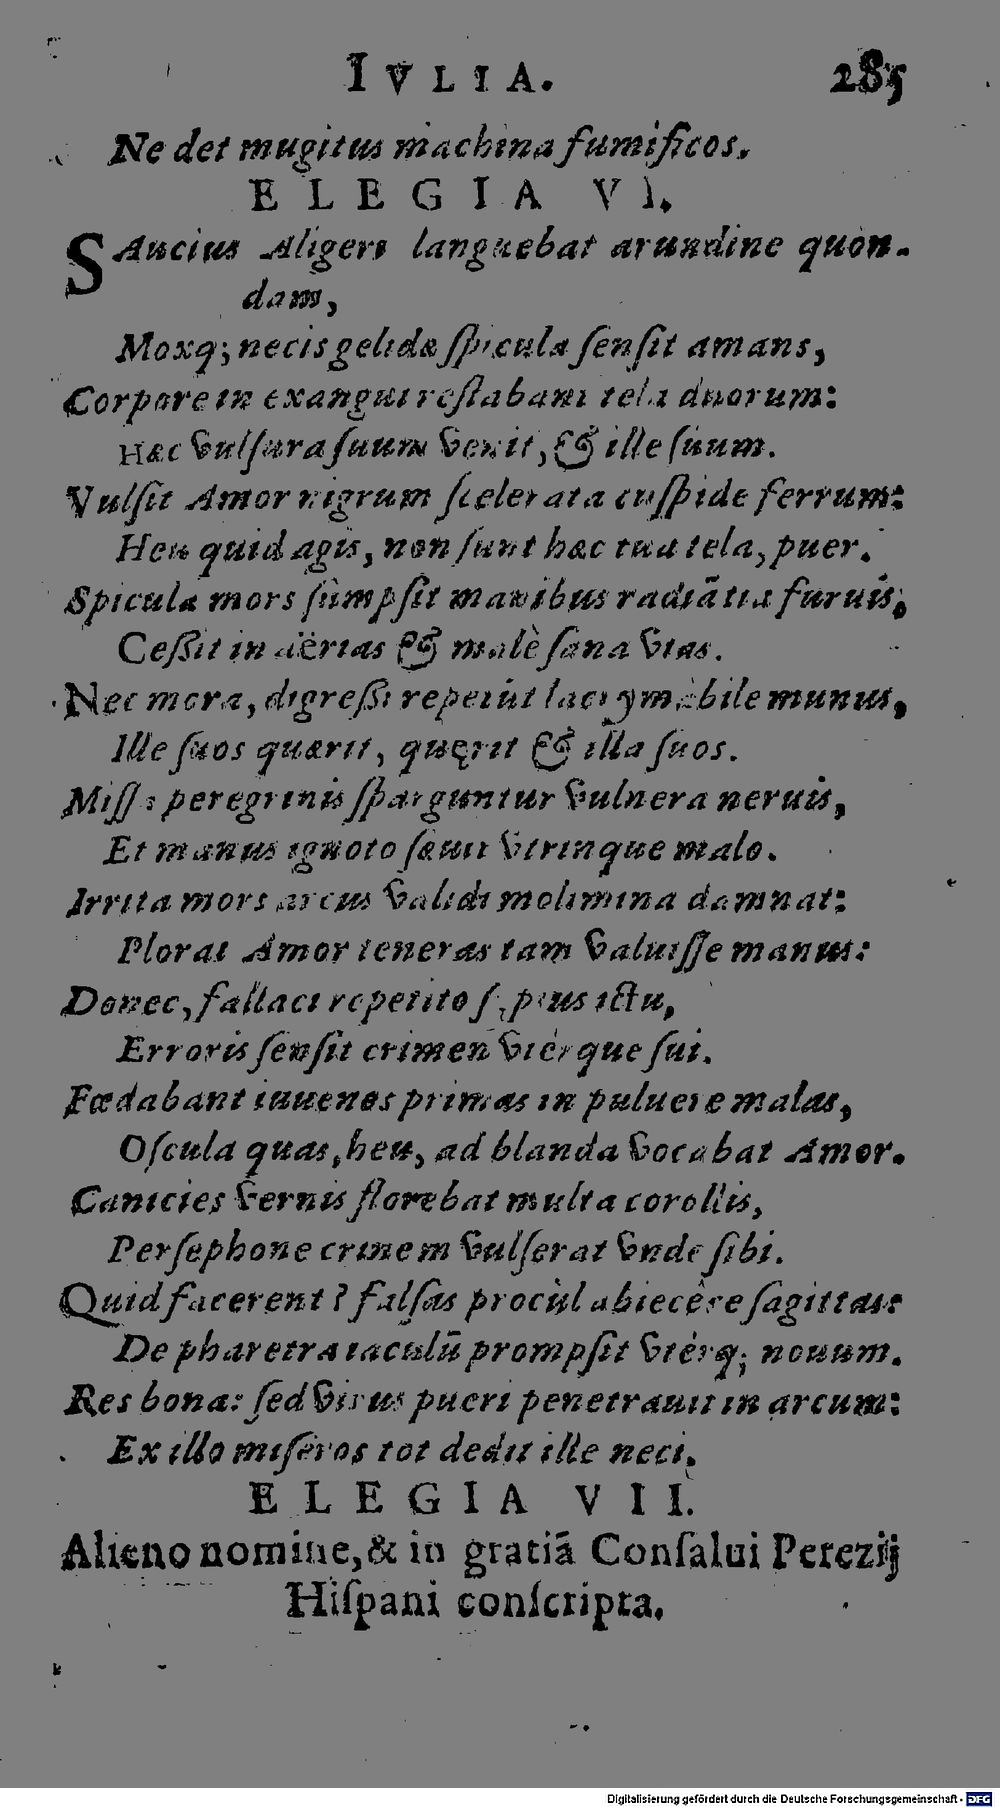 IVLIA. 285
Ne det mugitus machina fumificos.
ELEGIA VI.
SAucius Aligeri languebat arundine quon-
dam,
Moxq; necis gelidæ ſpicula ſenſit amans,
Corpore in exangui reſtabant tela duorum:
Hæc vulſura ſuum venit, & ille ſuum.
Vulſit Amor nigrum ſcelerata cuſpide ferrum:
Heu quid agis, non ſunt hæc tua tela, puer.
Spicula mors ſumpſit manibus radiātia furuis,
Ceßit in aërias & malè ſana vias.
Nec mora, digreßi reperiūt lacrymabile munus,
Ille ſuos quærit, quęrit & illa ſuos.
Miſſa peregrinis ſparguntur vulnera neruis,
Et manus ignoto ſæuit vtrinque malo.
Irrita mors arcus validi molimina damnat:
Plorat Amor teneras tam valuiſſe manus:
Donec, fallaci repetito ſæpius ictu,
Erroris ſenſit crimen vtérque ſui.
Fœdabant iuuenes primas in puluere malas,
Oſcula quas, heu, ad blanda vocabat Amor.
Canicies vernis florebat multa corollis,
Perſephone crinem vulſerat vnde ſibi.
Quid facerent? falſas procùl abiecêre ſagittas:
De pharetra iaculū prompſit vtérq; nouum.
Res bona: ſed virus pueri penetrauit in arcum:
Ex illo miſeros tot dedit ille neci.
ELEGIA VII.
Alieno nomine, & in gratiā Conſalui Perezij
Hiſpani conſcripta.
Digitalisierung gefördert durch die Deutsche Forschungsgemeinschaft - DFG